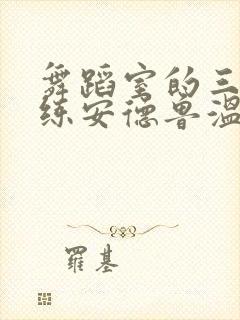 舞蹈室的三
练安德鲁温
羅基